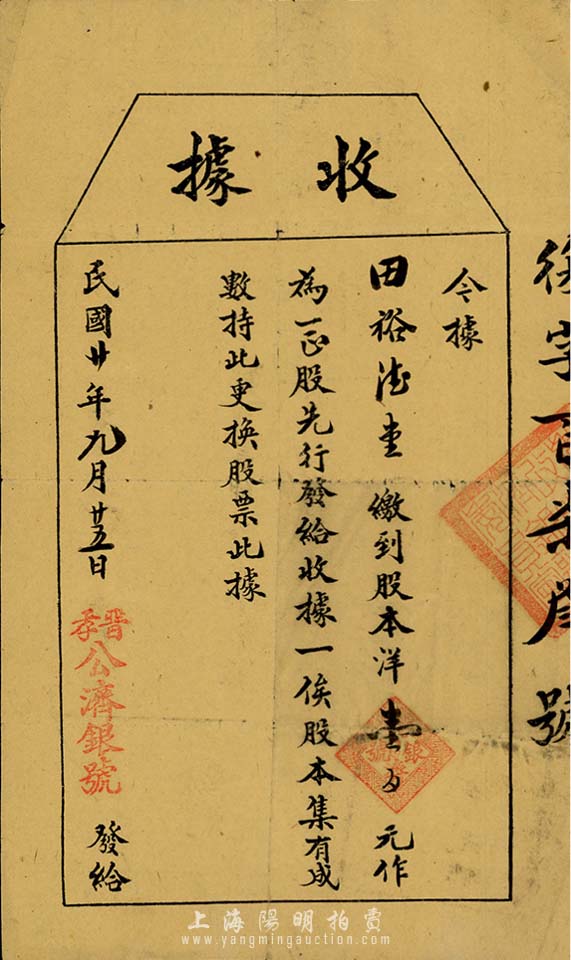 收據
今據
田裕德堂繳到股本洋壹百元作
為一正股先行發給收據一俟股本集有成
數持此更換股票此據
民國廿年九月廿五日
晋孝公濟銀號發給
字百
號
上海陽明拍賣
www.yangmingauction.com